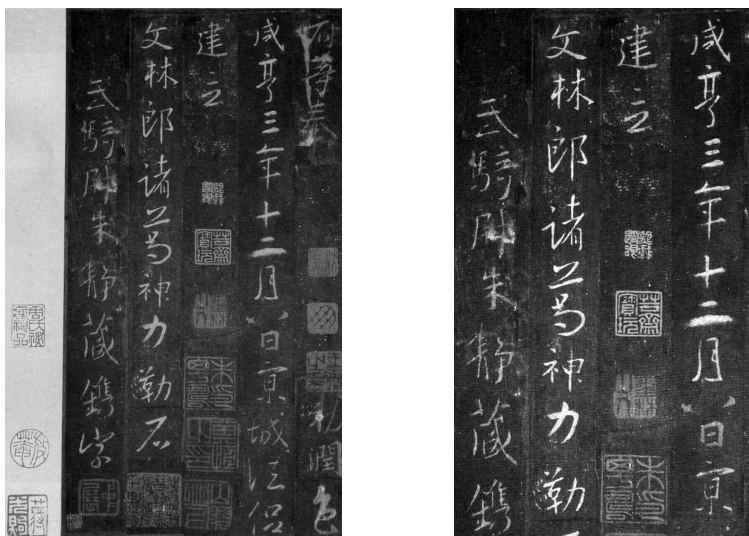 府等奉勑潤色
咸亨三年十二月八日京城法侣
建立
文林郎諸葛神力勒石
武騎尉朱靜藏鐫字
咸亨三年十二月八日京
建立
文林郎諸葛神力勒
武騎尉朱靜藏鐫